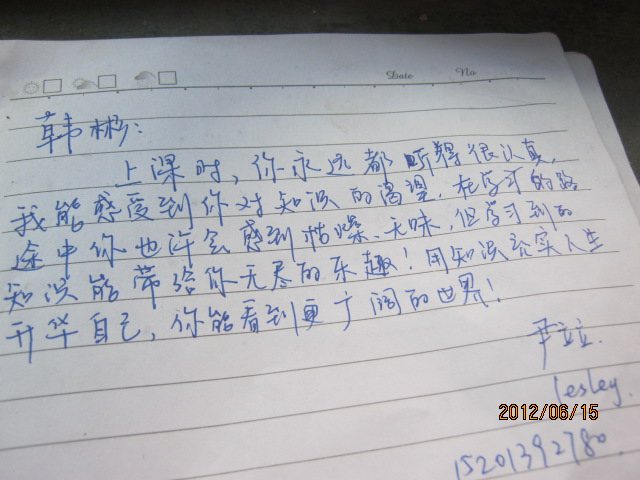 Date No
韩彬:
上课时,你永远都听得很认真,
我能感受到你对知识的渴望.在学习的路
途中你也许会感到枯燥、无味,但学习到的
知识能带给你无尽的乐趣!用知识充实人生
升华自己,你能看到更广阔的世界!
尹立立.
lesley.
2012/06/15
15201392780